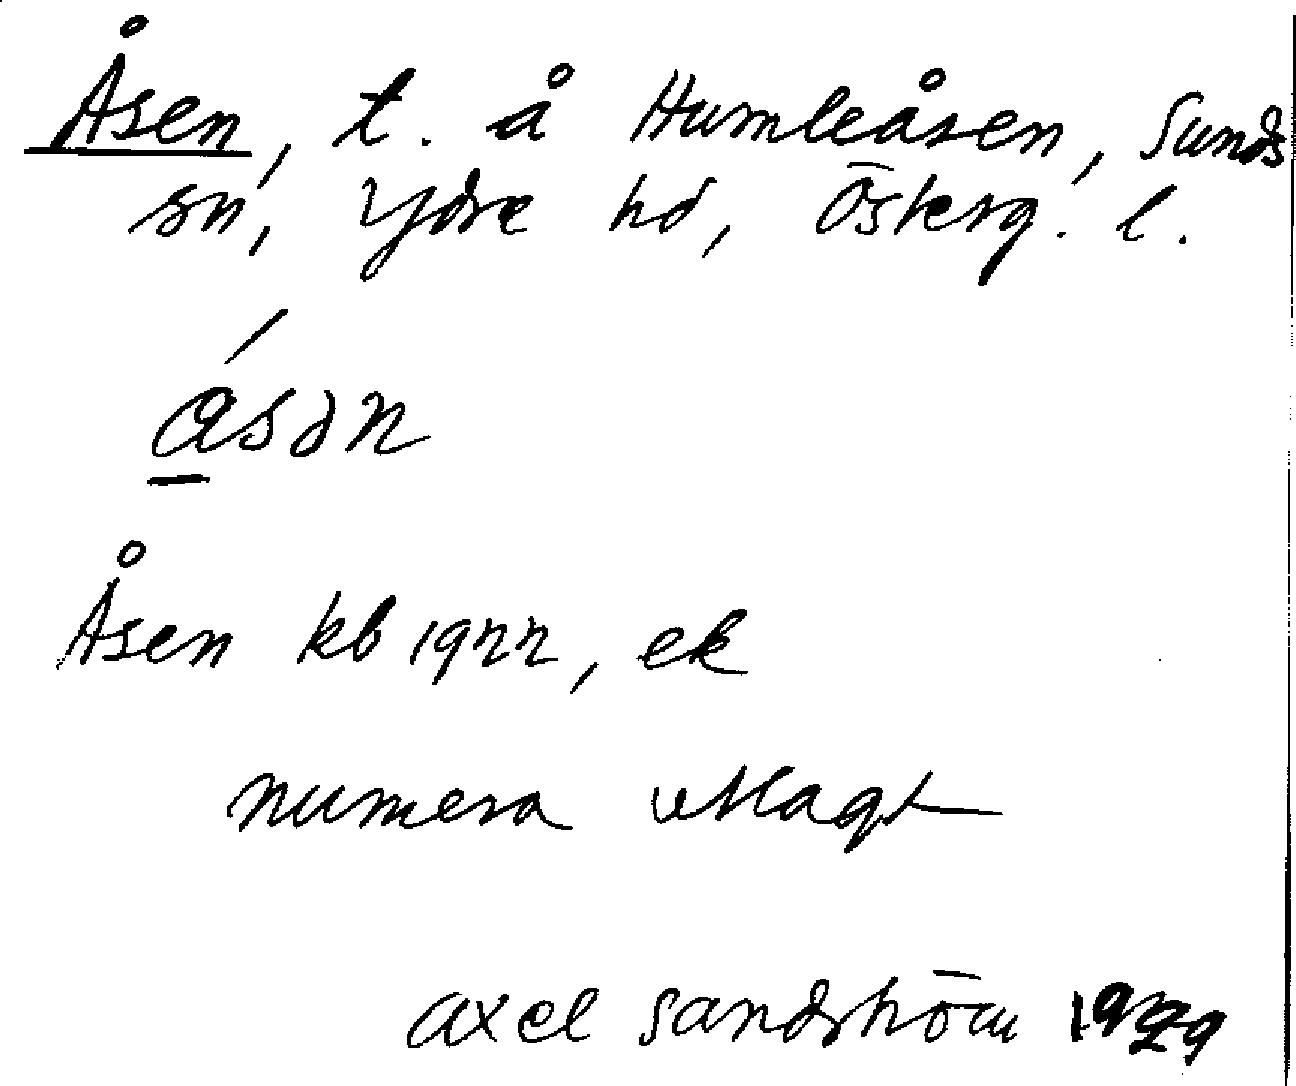 Åsen, t. å Humleåsen, Sunds
sn, Ydre hd, Österg. l.
Åsen kb 1922, ek
numera utlagt
Axel Sandström